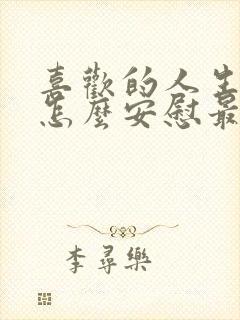 喜歡的人生
怎麼安慰最
李尋樂